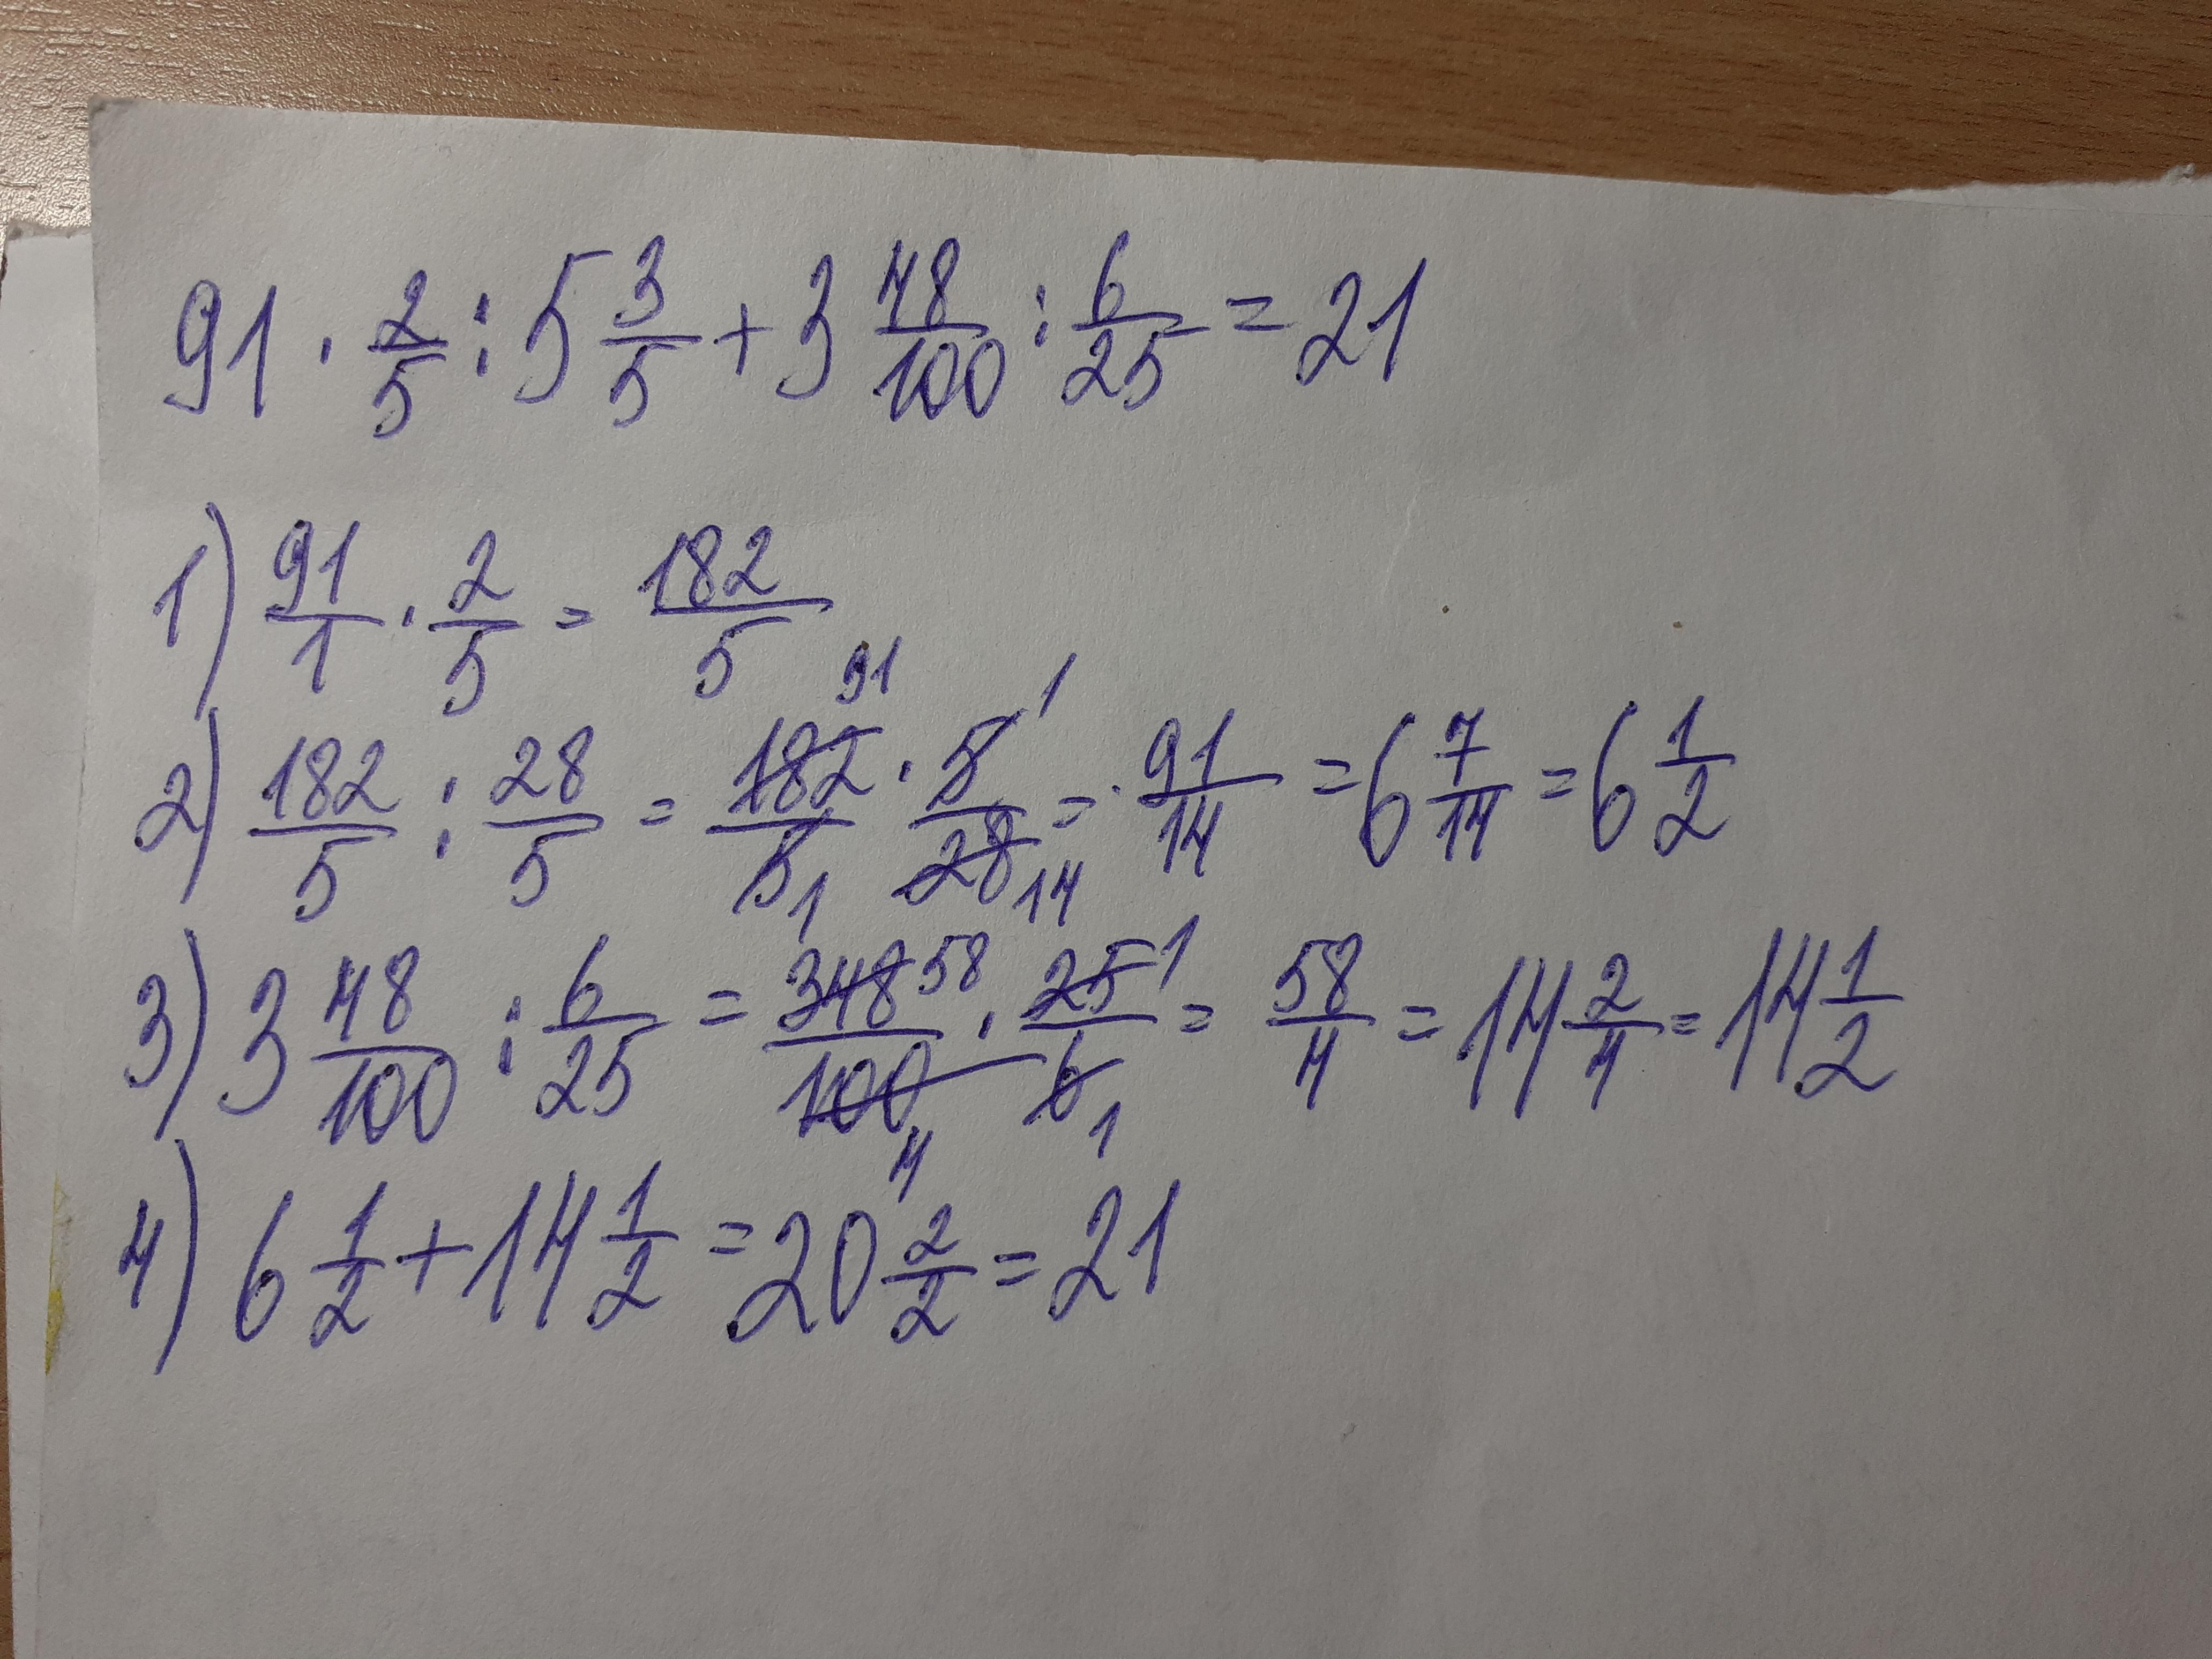 91 · 2/5 : 5 3/5 + 3 48/100 : 6/25 = 21
1) 91/1 · 2/5 = 182/5
2) 182/5 : 28/5 = 182 91/5 1 · 5 1/28 14 = 91/14 = 6 7/14 = 6 1/2
3) 3 48/100 : 6/25 = 348 58/100 4 · 25 1/6 1 = 58/4 = 14 2/4 = 14 1/2
4) 6 1/2 + 14 1/2 = 20 2/2 = 21